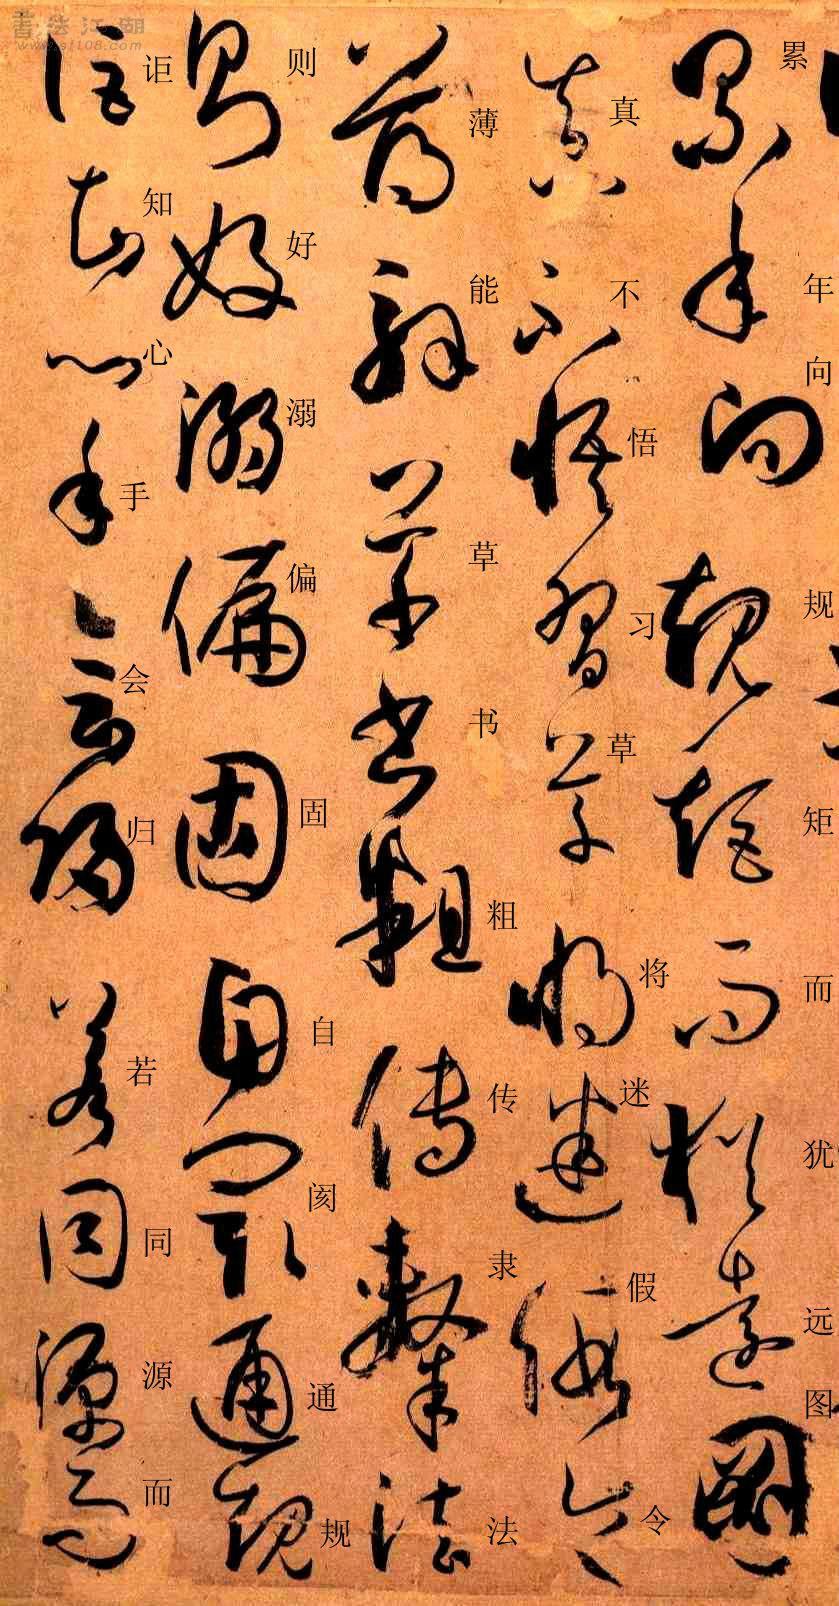 书法江湖
www.sf108.com
累年向规矩而犹远图
真不悟习草将迷假令
薄能草书粗传隶法
则好溺偏固自阂通规
讵知心手会归若同源而